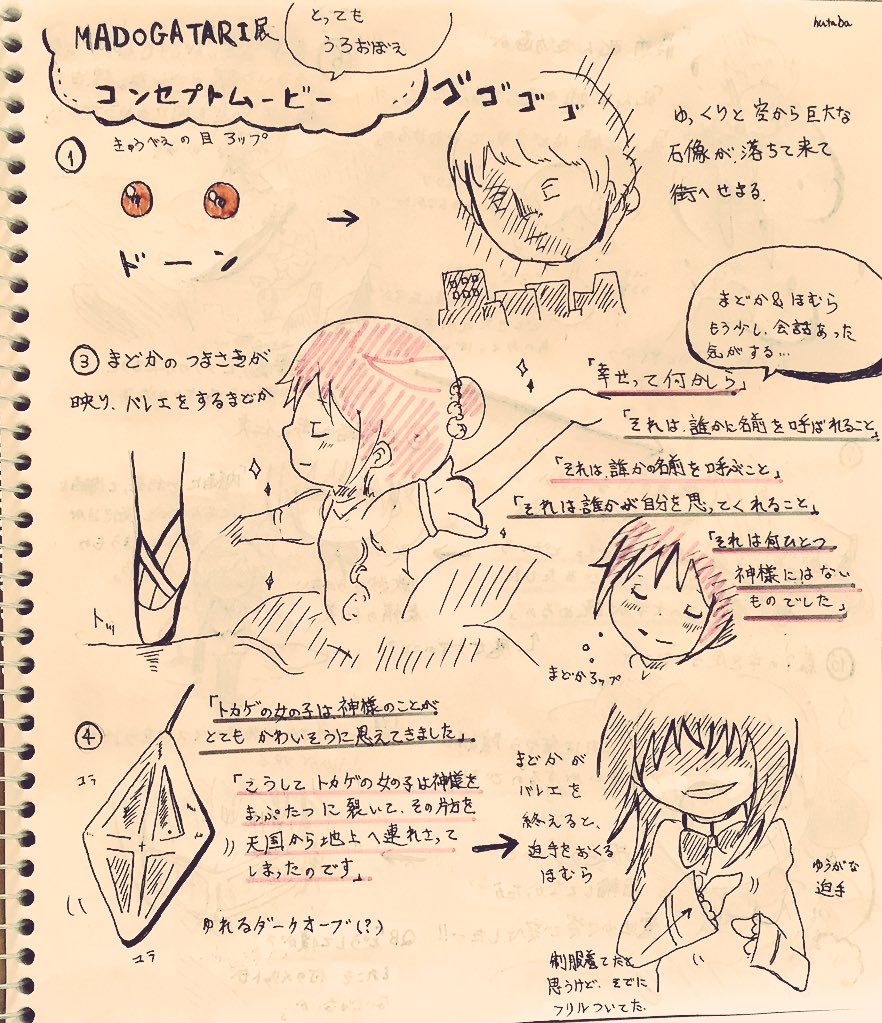 MADOGATARI展
コンセプトムービー
とっても
うろおぼえ
hutaba
①
きゅうべえの目 アップ
ドーン
→
ゴゴゴゴ
ゆっくりと 空から巨大な
石像が、落ちて来て
街へせまる.
まどか&ほむら
もう少し、会話あった
気がする…
③ まどかの つまさきが
映り、バレエをするまどか
「幸せって何かしら」
「それは、誰かに名前を呼ばれること」
「それは、誰かの名前を呼ぶこと」
「それは誰かが自分を思ってくれること」
「それは何ひとつ
神様にはない
ものでした」
トッ
まどかアップ
④
「トカゲの女の子は、神様のことが
とても かわいそうに思えてきました」
「こうして トカゲの女の子は神様を
まっぷたつ に 裂いて、その片方を
天国から地上へ連れさって
しまったのです」
ユラ
ユラ
ゆれるダークオーブ(?)
→
まどか が
バレエ を
終えると、
拍手をおくる
ほむら
ゆうがな
拍手
制服着てたと
思うけど、そでに
フリルついてた.